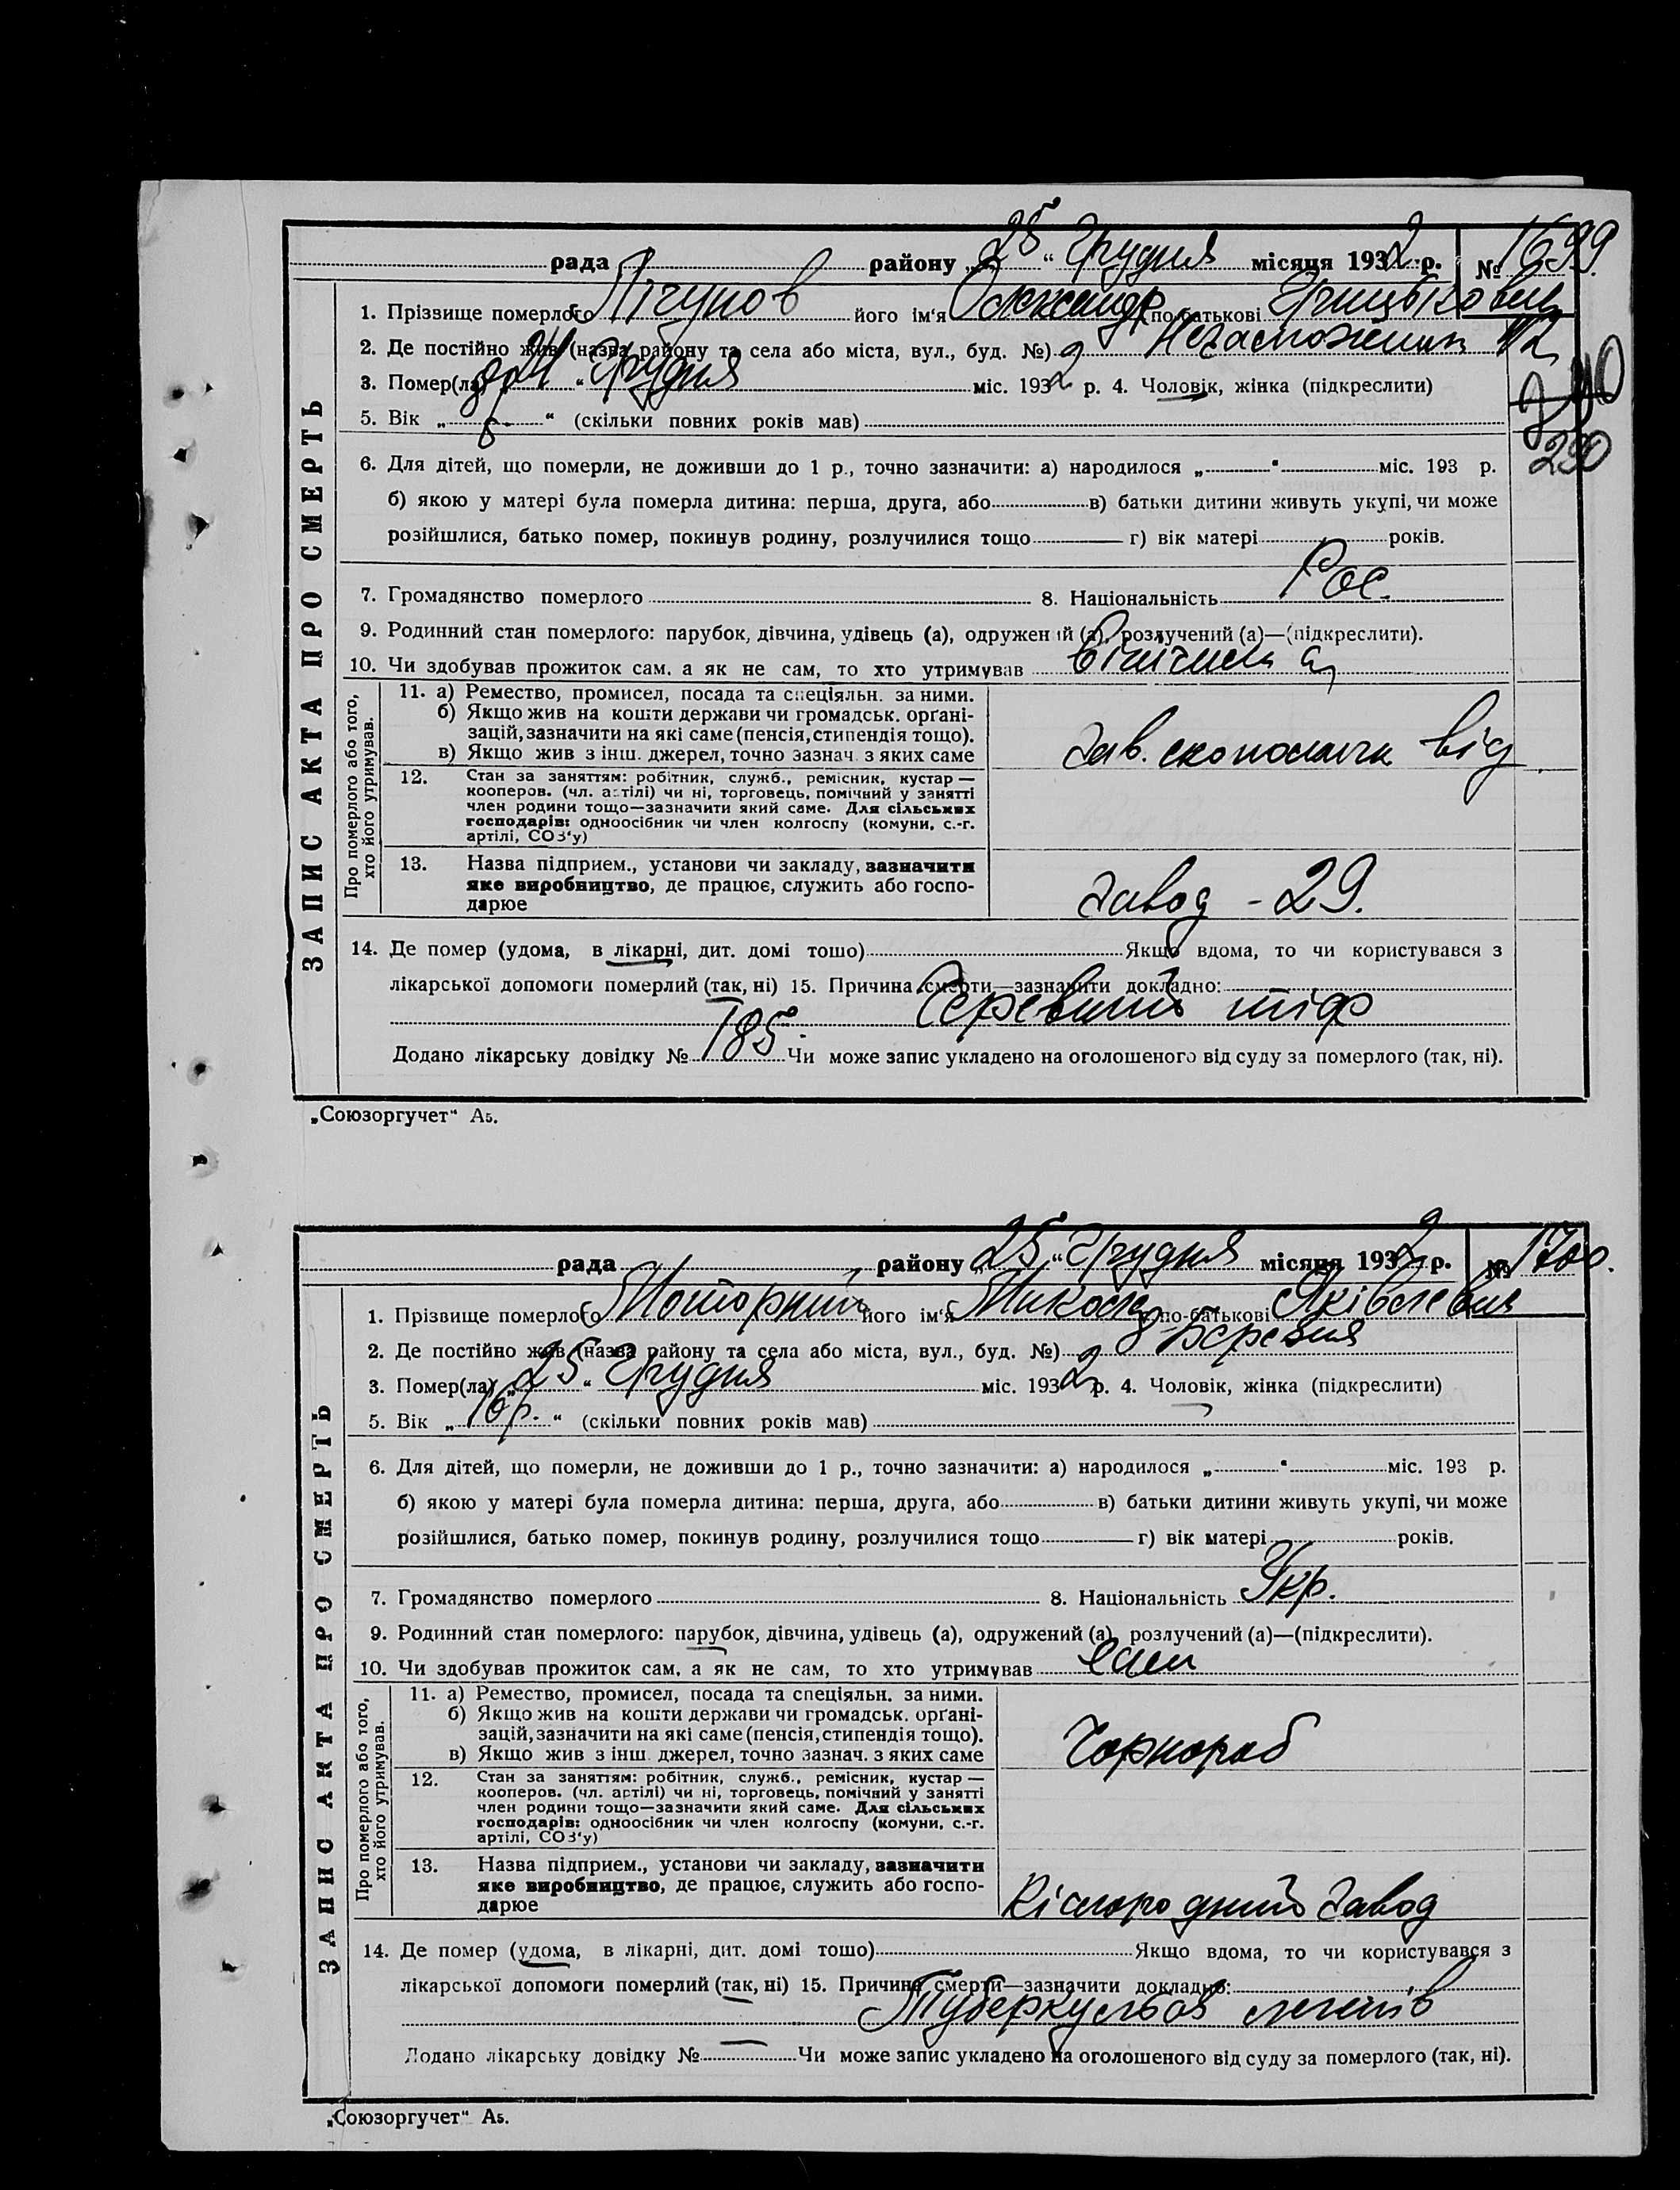 рада района „25“ Грудня місяця 1932 р. № 1699
1. Прізвище померлого Пігунов його ім'я Олександр по-батькові Грицькович
2. Де постійно жив (назва району та села або міста, вул., буд. №) Незаможник 12
3. Помер(ла) „24“ Грудня міс. 1932 р. 4. Чоловік, жінка (підкреслити)
5. Вік „ “ (скільки повних років мав)
290
6. Для дітей, що померли, не доживши до 1 р., точно зазначити: а) народилося „ “ міс. 193 р.
б) якою у матері була померла дитина: перша, друга, або в) батьки дитини живуть укупі, чи може
розійшлися, батько помер, покинув родину, розлучилися тощо г) вік матері років.
7. Громадянство померлого 8. Національність Рос.
9. Родинний стан померлого: парубок, дівчина, удівець (а), одружений (а), розлучений (а)—(підкреслити).
10. Чи здобував прожиток сам, а як не сам, то хто утримував
ЗАПИС АКТА ПРО СМЕРТЬ
Про померлого або того, хто його утримував.
11. а) Ремество, промисел, посада та спеціяльн. за ними.
б) Якщо жив на кошти держави чи громадськ. орґані-
зацій, зазначити на які саме (пенсія, стипендія тощо).
в) Якщо жив з інш. джерел, точно зазнач. з яких саме
Зав. економічн. від
12. Стан за заняттям: робітник, служб., ремісник, кустар —
кооперов. (чл. артілі) чи ні, торговець, помічний у занятті
член родини тощо—зазначити який саме. Для сільських
господарів: одноосібник чи член колгоспу (комуни, с.-г.
артілі, СОЗ'у)
13. Назва підприєм., установи чи закладу, зазначити
яке виробництво, де працює, служить або госпо-
дарює
Завод - 29.
14. Де помер (удома, в лікарні, дит. домі тошо) Якщо вдома, то чи користувався з
лікарської допомоги померлий (так, ні) 15. Причина смерти—зазначити докладно:
Черевний тіф
Додано лікарську довідку № 185. Чи може запис укладено на оголошеного від суду за померлого (так, ні).
„Союзоргучет“ А5.
рада району „25“ Грудня місяця 1932 р. № 1700.
1. Прізвище померлого Моторний його ім'я Микола по-батькові Яківлевич
2. Де постійно жив (назва району та села або міста, вул., буд. №)
3. Помер(ла) „25“ Грудня міс. 1932 р. 4. Чоловік, жінка (підкреслити)
5. Вік „16р.“ (скільки повних років мав)
6. Для дітей, що померли, не доживши до 1 р., точно зазначити: а) народилося „ “ міс. 193 р.
б) якою у матері була померла дитина: перша, друга, або в) батьки дитини живуть укупі, чи може
розійшлися, батько помер, покинув родину, розлучилися тощо г) вік матері років.
7. Громадянство померлого 8. Національність Укр.
9. Родинний стан померлого: парубок, дівчина, удівець (а), одружений (а), розлучений (а)—(підкреслити).
10. Чи здобував прожиток сам, а як не сам, то хто утримував сам
ЗАПИС АКТА ПРО СМЕРТЬ
Про померлого або того, хто його утримував.
11. а) Ремество, промисел, посада та спеціяльн. за ними.
б) Якщо жив на кошти держави чи громадськ. орґані-
зацій, зазначити на які саме (пенсія, стипендія тощо).
в) Якщо жив з інш. джерел, точно зазнач. з яких саме
Чорнороб
12. Стан за заняттям: робітник, служб., ремісник, кустар —
кооперов. (чл. артілі) чи ні, торговець, помічний у занятті
член родини тощо—зазначити який саме. Для сільських
господарів: одноосібник чи член колгоспу (комуни, с.-г.
артілі, СОЗ'у)
13. Назва підприєм., установи чи закладу, зазначити
яке виробництво, де працює, служить або госпо-
дарює
Кіслородний завод
14. Де помер (удома, в лікарні, дит. домі тошо) Якщо вдома, то чи користувався з
лікарської допомоги померлий (так, ні) 15. Причина смерти—зазначити докладно:
Туберкульоз легенів
Додано лікарську довідку № — Чи може запис укладено на оголошеного від суду за померлого (так, ні).
„Союзоргучет“ А5.